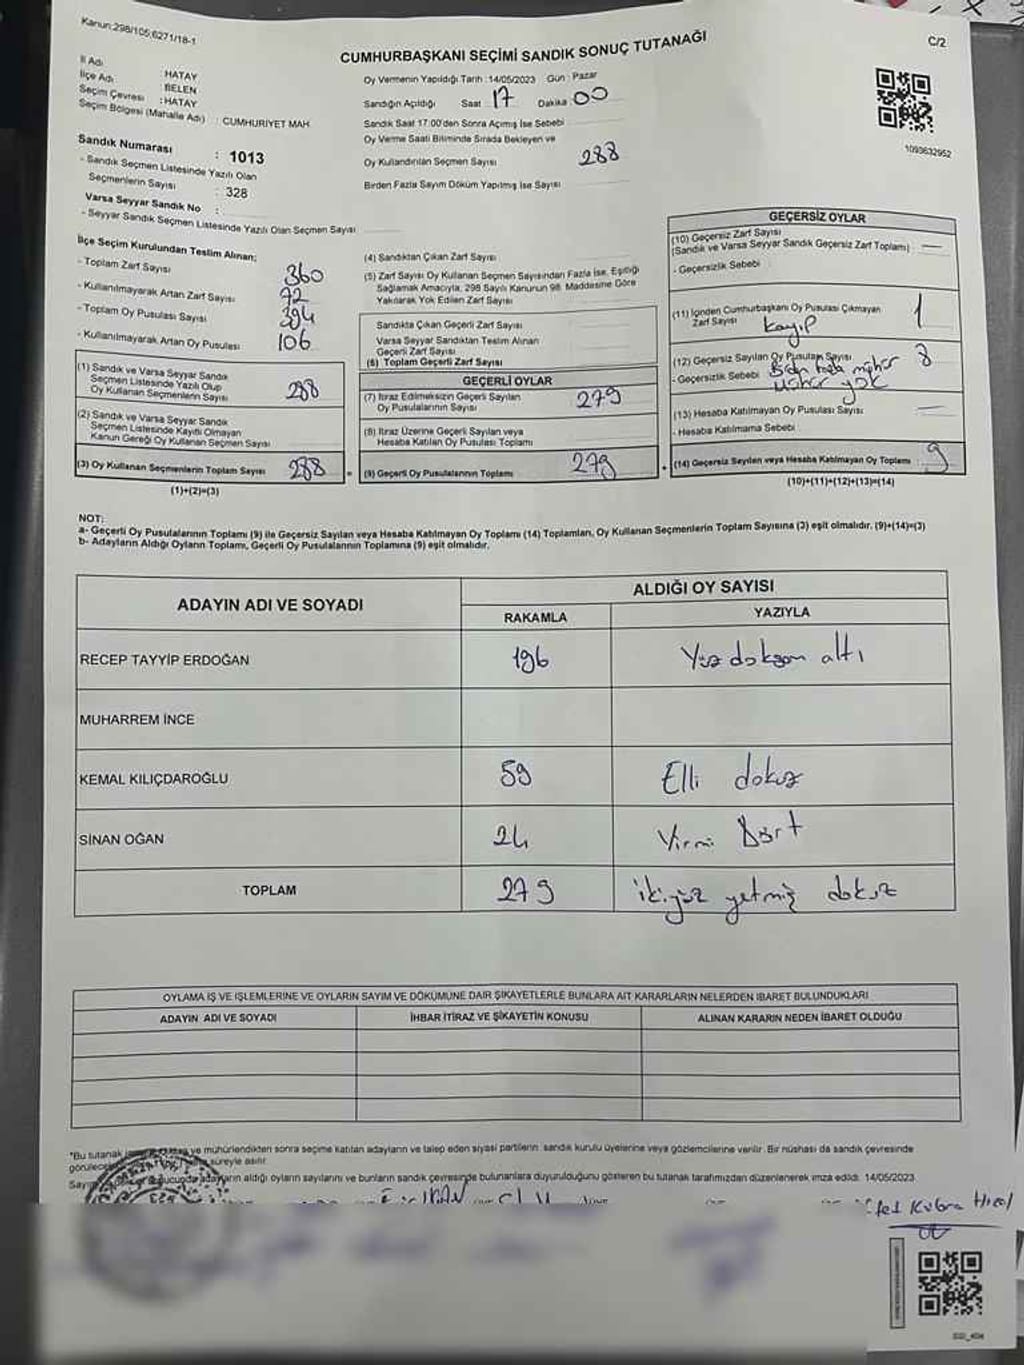 Kanun:298/105;6271/18-1
CUMHURBAŞKANI SEÇİMİ SANDIK SONUÇ TUTANAĞI
C/2
İl Adı : HATAY
İlçe Adı : BELEN
Seçim Çevresi : HATAY
Seçim Bölgesi (Mahalle Adı) : CUMHURİYET MAH.
Sandık Numarası : 1013
- Sandık Seçmen Listesinde Yazılı Olan
Seçmenlerin Sayısı : 328
Varsa Seyyar Sandık No :
- Seyyar Sandık Seçmen Listesinde Yazılı Olan Seçmen Sayısı
Oy Vermenin Yapıldığı Tarih :14/05/2023 Gün : Pazar
Sandığın Açıldığı Saat 17 Dakika 00
Sandık Saat 17:00'den Sonra Açımış İse Sebebi
Oy Verme Saati Bitiminde Sırada Bekleyen ve
Oy Kullandırılan Seçmen Sayısı 288
Birden Fazla Sayım Döküm Yapılmış İse Sayısı
1093632952
İlçe Seçim Kurulundan Teslim Alınan;
- Toplam Zarf Sayısı 360
- Kullanılmayarak Artan Zarf Sayısı 72
- Toplam Oy Pusulası Sayısı 394
- Kullanılmayarak Artan Oy Pusulası 106
(1) Sandık ve Varsa Seyyar Sandık
Seçmen Listesinde Yazılı Olup
Oy Kullanan Seçmenlerin Sayısı 288
(2) Sandık ve Varsa Seyyar Sandık
Seçmen Listesinde Kayıtlı Olmayan
Kanun Gereği Oy Kullanan Seçmen Sayısı
(3) Oy Kullanan Seçmenlerin Toplam Sayısı 288
(1)+(2)=(3)
(4) Sandıktan Çıkan Zarf Sayısı
(5) Zarf Sayısı Oy Kullanan Seçmen Sayısından Fazla İse, Eşitliği
Sağlamak Amacıyla, 298 Sayılı Kanunun 98. Maddesine Göre
Yakılarak Yok Edilen Zarf Sayısı
Sandıkta Çıkan Geçerli Zarf Sayısı
Varsa Seyyar Sandıktan Teslim Alınan
Geçerli Zarf Sayısı
(6) Toplam Geçerli Zarf Sayısı
GEÇERLİ OYLAR
(7) İtiraz Edilmeksizin Geçerli Sayılan
Oy Pusulalarının Sayısı 279
(8) İtiraz Üzerine Geçerli Sayılan veya
Hesaba Katılan Oy Pusulası Toplamı
= (9) Geçerli Oy Pusulalarının Toplamı 279 +
GEÇERSİZ OYLAR
(10) Geçersiz Zarf Sayısı
(Sandık ve Varsa Seyyar Sandık Geçersiz Zarf Toplamı) —
- Geçersizlik Sebebi
(11) İçinden Cumhurbaşkanı Oy Pusulası Çıkmayan
Zarf Sayısı kayıp 1
(12) Geçersiz Sayılan Oy Pusulası Sayısı 8
- Geçersizlik Sebebi Birden fazla mühür
mühür yok
(13) Hesaba Katılmayan Oy Pusulası Sayısı —
- Hesaba Katılmama Sebebi
(14) Geçersiz Sayılan veya Hesaba Katılmayan Oy Toplamı 9
(10)+(11)+(12)+(13)=(14)
NOT:
a- Geçerli Oy Pusulalarının Toplamı (9) ile Geçersiz Sayılan veya Hesaba Katılmayan Oy Toplamı (14) Toplamları, Oy Kullanan Seçmenlerin Toplam Sayısına (3) eşit olmalıdır. (9)+(14)=(3)
b- Adayların Aldığı Oyların Toplamı, Geçerli Oy Pusulalarının Toplamına (9) eşit olmalıdır.
ADAYIN ADI VE SOYADI
ALDIĞI OY SAYISI
RAKAMLA YAZIYLA
RECEP TAYYİP ERDOĞAN 196 Yüz doksan altı
MUHARREM İNCE
KEMAL KILIÇDAROĞLU 59 Elli dokuz
SİNAN OĞAN 24 Yirmi Dört
TOPLAM 279 ikiyüz yetmiş dokuz
OYLAMA İŞ VE İŞLEMLERİNE VE OYLARIN SAYIM VE DÖKÜMÜNE DAİR ŞİKAYETLERLE BUNLARA AİT KARARLARIN NELERDEN İBARET BULUNDUKLARI
ADAYIN ADI VE SOYADI İHBAR İTİRAZ VE ŞİKAYETİN KONUSU ALINAN KARARIN NEDEN İBARET OLDUĞU
*Bu tutanak ve mühürlendikten sonra seçime katılan adayların ve talep eden siyasi partilerin sandık kurulu üyelerine veya gözlemcilerine verilir. Bir nüshası da sandık çevresinde
süreyle asılır.
adayların aldığı oyların sayılarını ve bunların sandık çevresinde bulunanlara duyurulduğunu gösteren bu tutanak tarafımızdan düzenlenerek imza edildi. 14/05/2023
Kübra